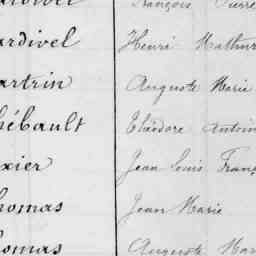 François Pierre
ardivel Henri Mathur
artrin Auguste Marie
hébault Théodore Antoin
xier Jean Louis Franç
homas Jean Marie
homas Auguste Mar